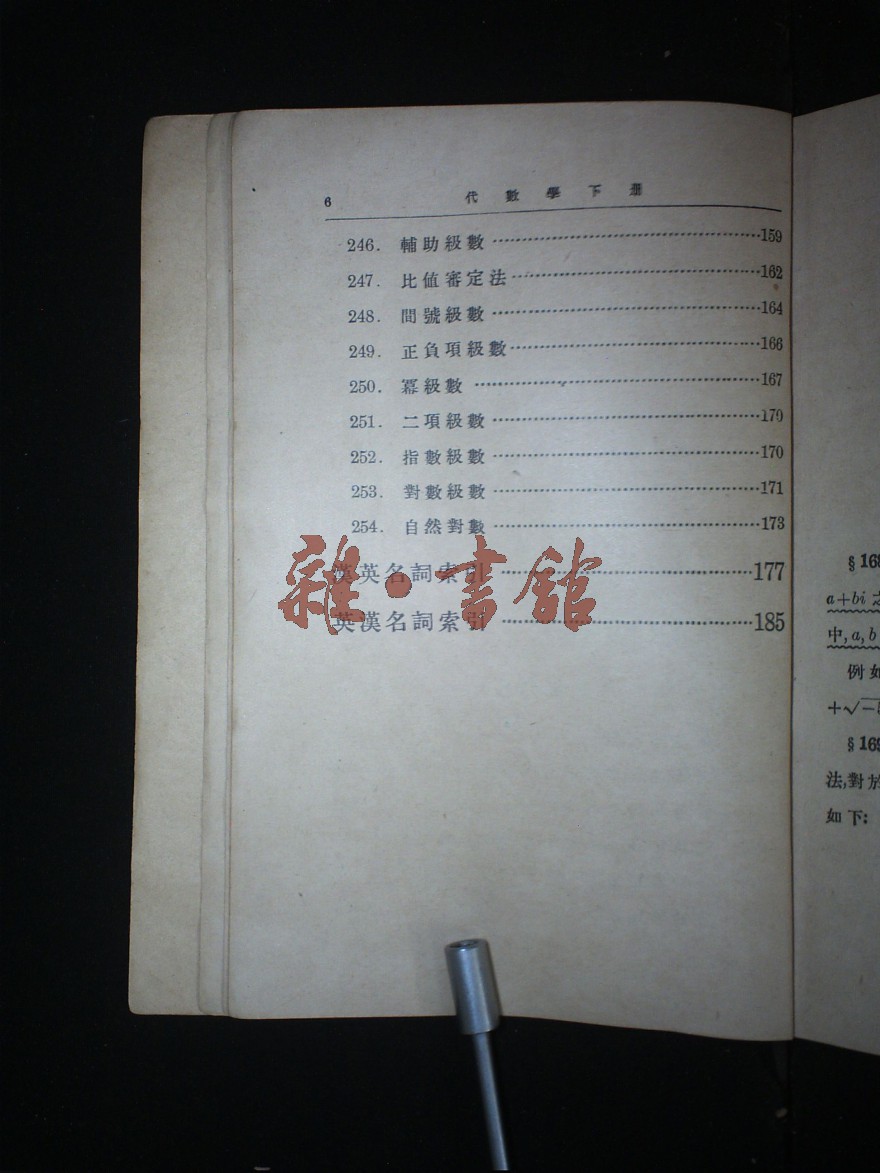 6 代數學下册
246. 輔助級數 159
247. 比值審定法 162
248. 間號級數 164
249. 正負項級數 166
250. 冪級數 167
251. 二項級數 179
252. 指數級數 170
253. 對數級數 171
254. 自然對數 173
漢英名詞索引 177
英漢名詞索引 185
雜·書館
§168
a+bi
中,a,b
例如
+√
§169
法,對於
如下: